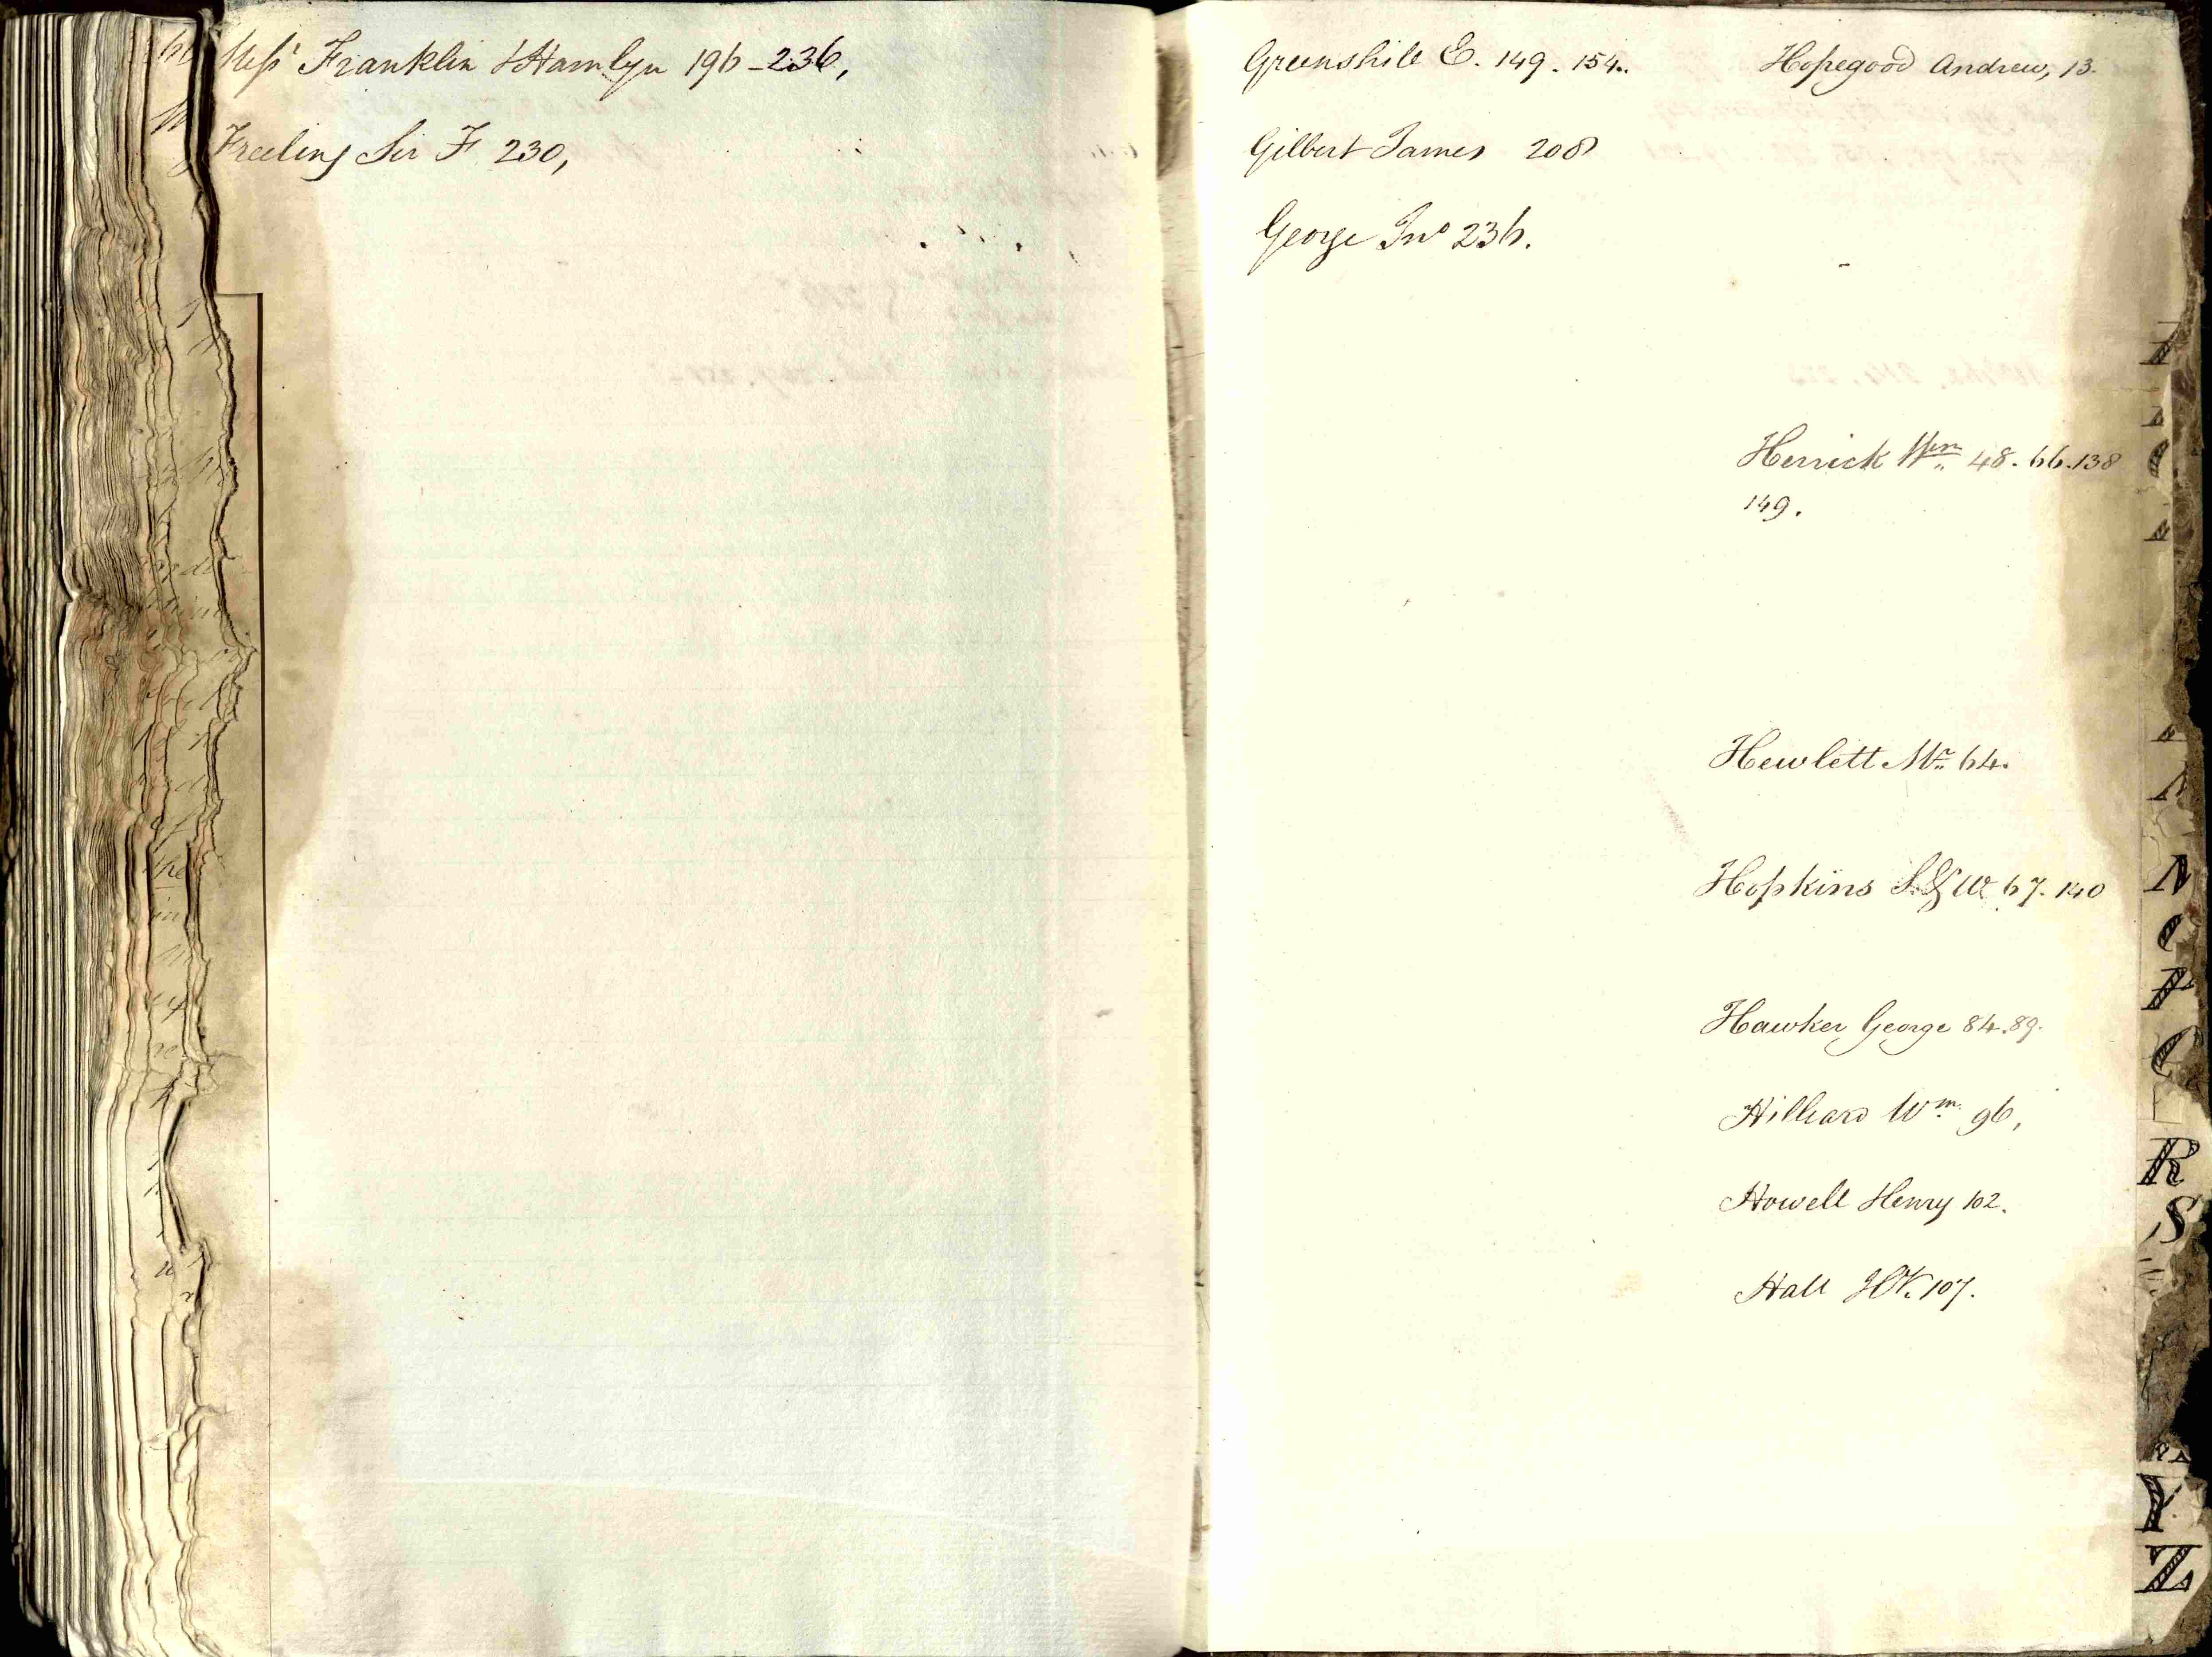 Messrs Franklin & Hamlyn 196-236,
Freeling Sir F 230,
Greenshill E. 149. 154.
Gilbert James 208
George Jno 236.
Hopegood Andrew, 13.
Herrick Wm 48. 66. 138
149.
Hewlett Mr 64.
Hopkins S. & W 67. 140
Hawker George 84. 89.
Hilliard Wm 96,
Howell Henry 102.
Hall 107.
N
O
P
R
S
Y
Z